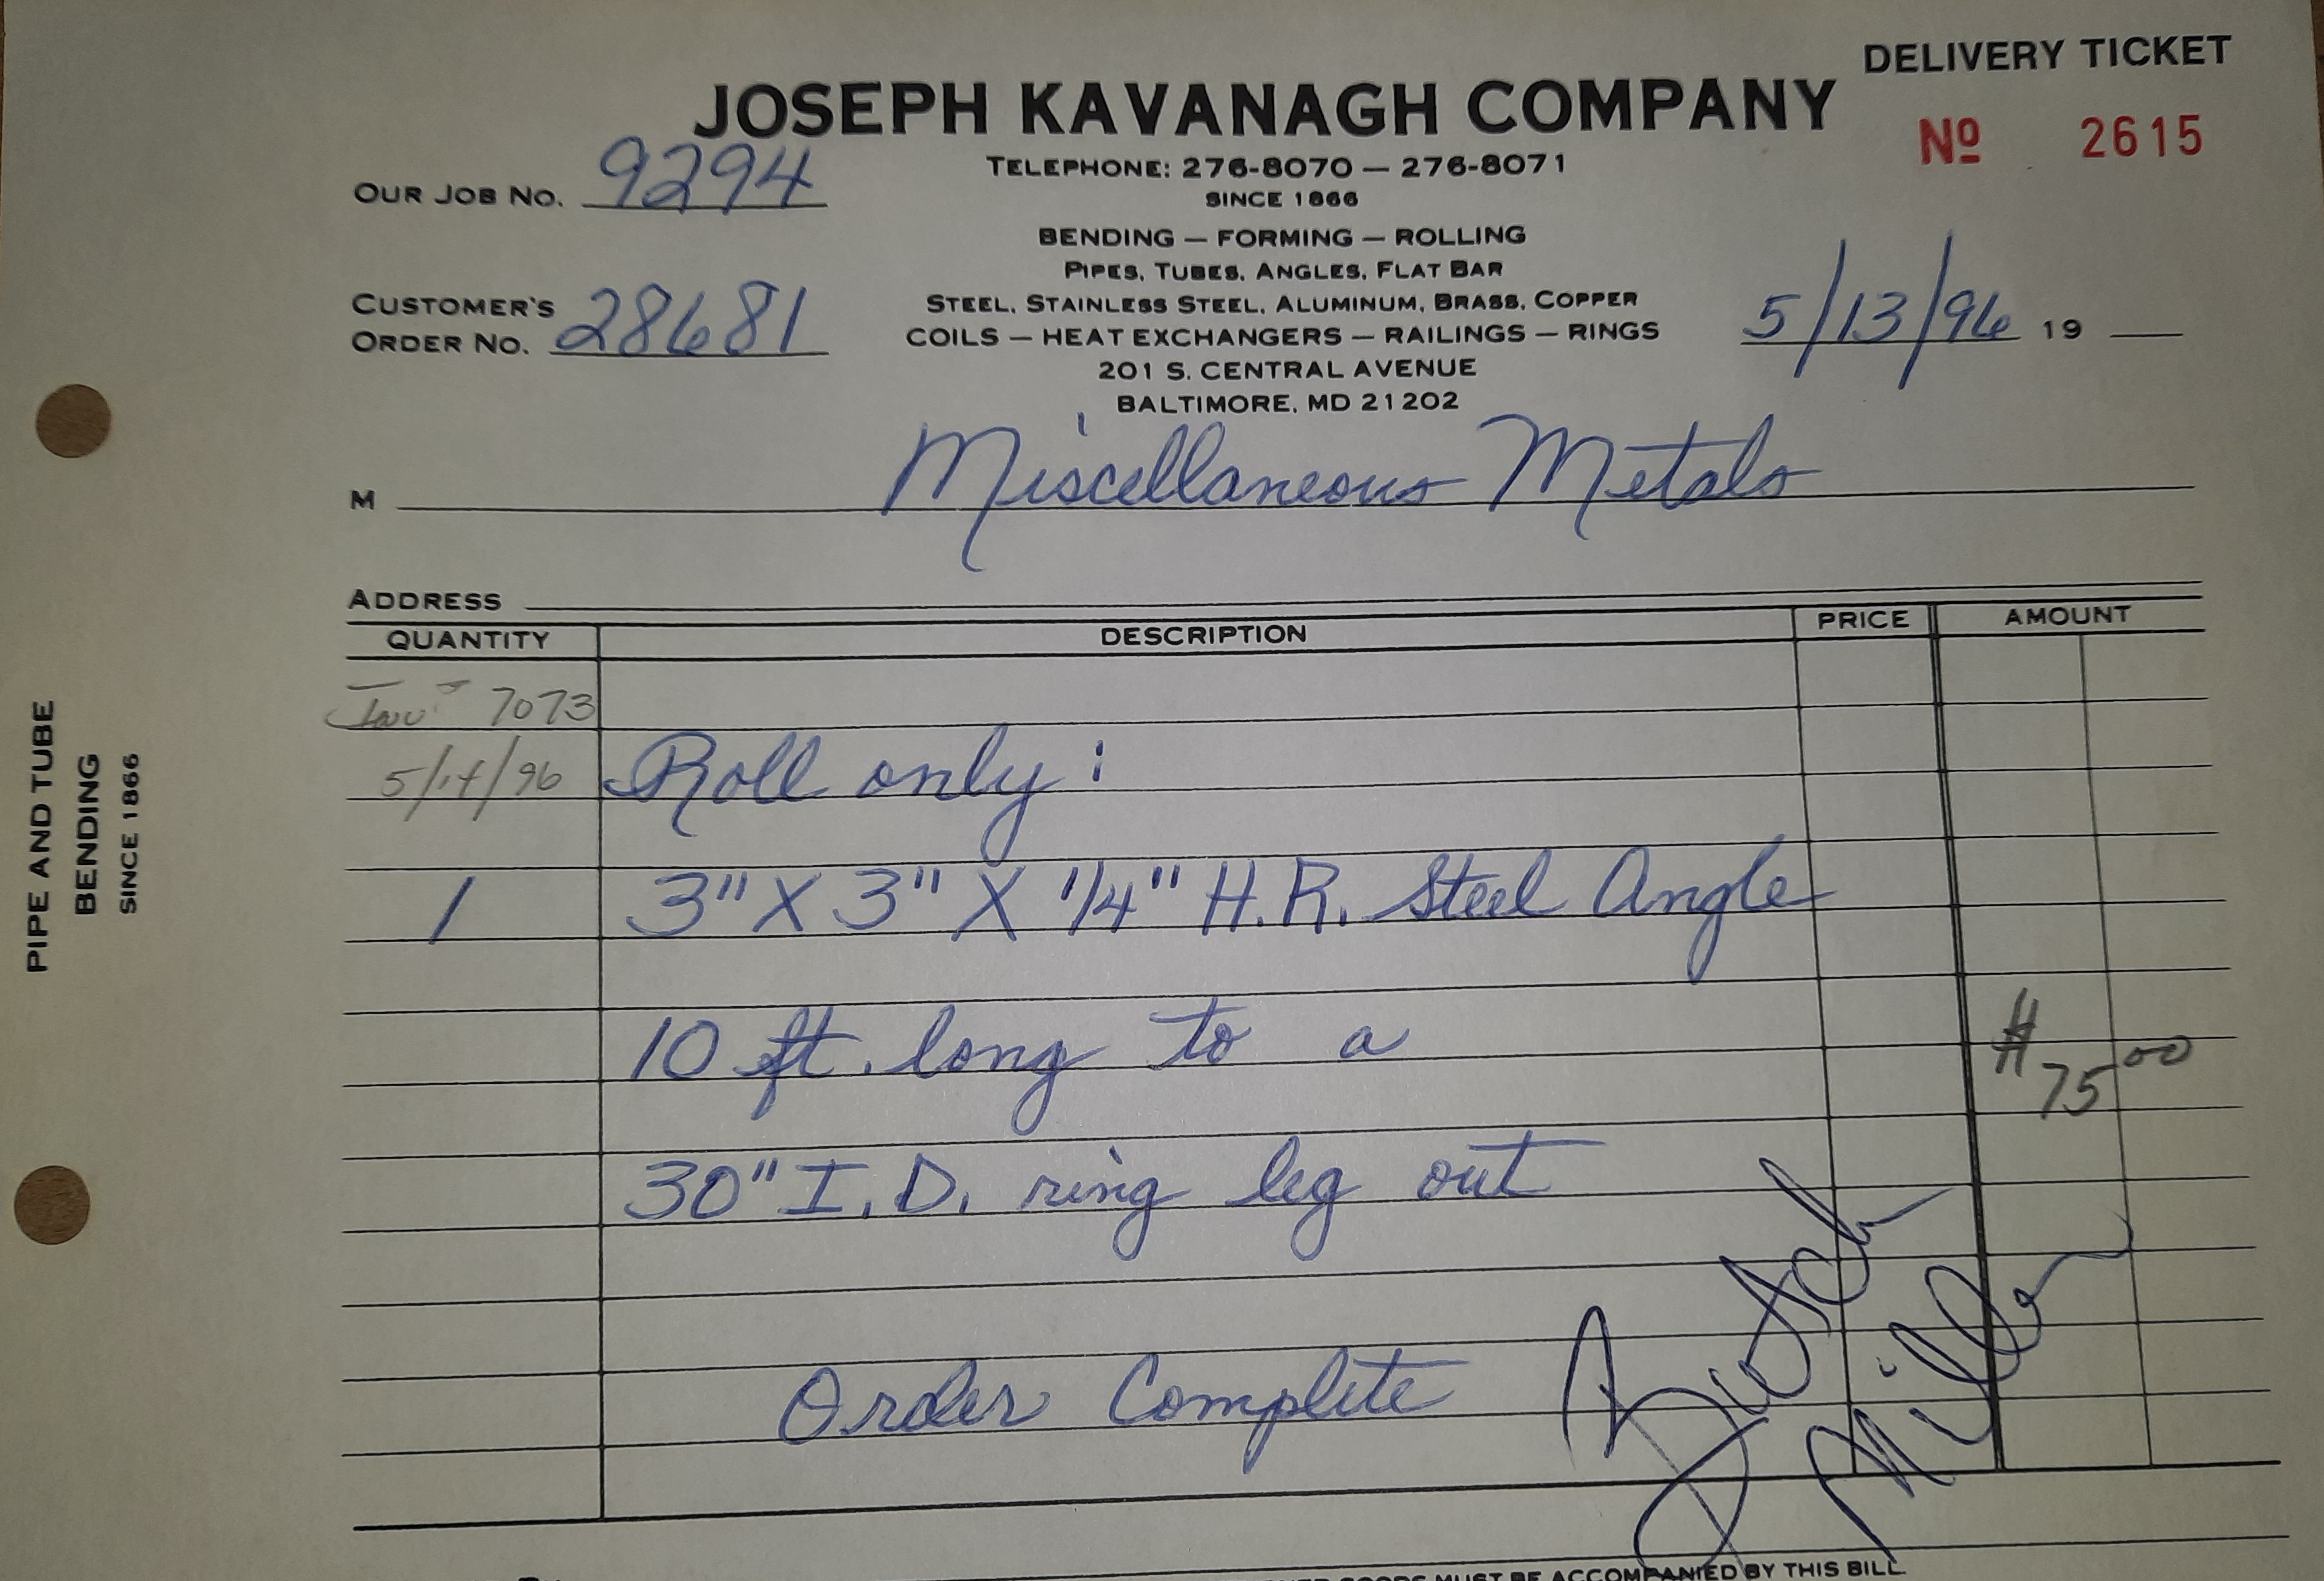 DELIVERY TICKET
JOSEPH KAVANAGH COMPANY
Nº 2615
OUR JOB NO. 9294
TELEPHONE: 276-8070 — 276-8071
SINCE 1866
BENDING — FORMING — ROLLING
PIPES, TUBES, ANGLES, FLAT BAR
CUSTOMER'S
ORDER NO. 28681
STEEL, STAINLESS STEEL, ALUMINUM, BRASS, COPPER
COILS — HEAT EXCHANGERS — RAILINGS — RINGS
5/13/96 19
201 S. CENTRAL AVENUE
BALTIMORE, MD 21202
M Miscellaneous Metals
ADDRESS
QUANTITY DESCRIPTION PRICE AMOUNT
Inv 7073
5/14/96 Roll only:
1 3" X 3" X 1/4" H.R. Steel Angle
10 ft. long to a
$ 75 00
30" I.D. ring leg out
Order Complete
Miller
GOODS MUST BE ACCOMPANIED BY THIS BILL.
PIPE AND TUBE
BENDING
SINCE 1866